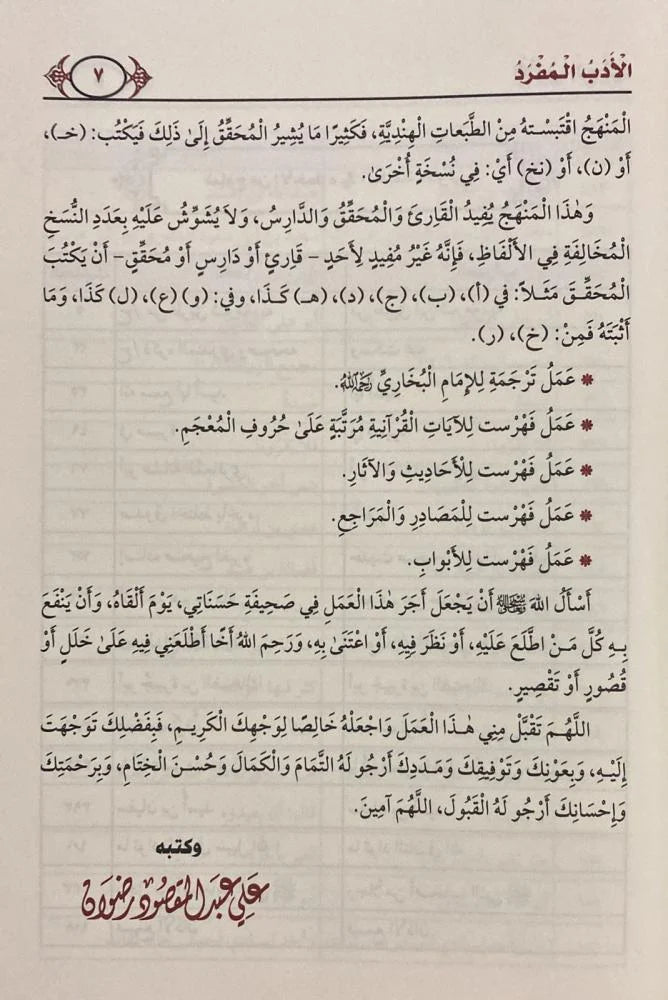 الْأَدَبُ الْمُفْرَدُ
٧
الْمَنْهَجُ اقْتَبَسْتهُ مِنْ الطَّبَعاتِ الْهِنْدِيَّةِ، فَكَثِيرًا مَا يُشِيرُ الْمُحَقِّقُ إِلَىٰ ذَلِكَ فَيَكْتُب: (خـ)،
أَوْ (ن)، أَوْ (نخ) أَيْ: فِي نُسْخَةٍ أُخْرَىٰ.
وَهَٰذَا الْمَنْهَجُ يُفِيدُ الْقَارِئَ وَالْمُحَقِّقُ وَالدَّارِسُ، وَلَا يُشَوِّشُ عَلَيْهِ بِعَدَدِ النُّسَخِ
الْمُخَالِفَةِ فِي الْأَلْفَاظِ، فَإِنَّهُ غَيْرُ مُفِيدٍ لِأَحَدٍ – قَارِئٍ أَوْ دَارِسٍ أَوْ مُحَقِّقٍ – أَنْ يَكْتُبَ
الْمُحَقِّقَ مَثَلًا: فِي (أ)، (ب)، (ج)، (د)، (هـ) كَذَا، وفي: (و) (ع)، (ل) كَذَا، وَمَا
أَثْبَتَهُ فَمِنْ: (خ)، (ر).
* عَمَلُ تَرْجَمَةٍ لِلْإِمَامِ الْبُخَارِيِّ رَحِمَهُ اللهُ.
* عَمَلُ فَهْرَست لِلآيَاتِ الْقُرْآنِيةِ مُرَتَّبَةٍ عَلَىٰ حُرُوفِ الْمُعْجَمِ.
* عَمَلُ فَهْرَست لِلْأَحَادِيثِ وَالآثَارِ.
* عَمَلُ فَهْرَست لِلْمَصَادِرِ وَالْمَرَاجِعِ.
* عَمَلُ فَهْرَست لِلْأَبْوابِ.
أَسْأَلُ اللهَ ﷻ أَنْ يَجْعَلَ أَجَرَ هَٰذَا الْعَمَلِ فِي صَحِيفَةِ حَسَنَاتِي، يَوْمَ أَلْقَاهُ، وَأَنْ يَنْفَعَ
بِهِ كُلَّ مَنْ اطَّلَعَ عَلَيْهِ، أَوْ نَظَرَ فِيهِ، أَوْ اعْتَنَىٰ بِهِ، وَرَحِمَ اللهُ أَخًا أَطْلَعَنِي فِيهِ عَلَىٰ خَلَلٍ أَوْ
قُصُورٍ أَوْ تَقْصِيرٍ.
اللَّهُمَّ تَقَبَّلْ مِنِي هَٰذَا الْعَمَلَ وَاجْعَلْهُ خَالِصًا لِوَجْهِكَ الْكَرِيمِ، فَبِفَضْلِكَ تَوَجْهَتَ
إِلَيْهِ، وَبِعَوْنِكَ وَتَوْفِيقِكَ وَمَدَدِكَ أَرْجُو لَهُ التَّمَامَ وَالْكَمَالَ وَحُسْنَ الْخِتَامِ، وَبِرَحْمَتِكَ
وَإِحْسَانِكَ أَرْجُو لَهُ الْقَبُولَ، اللَّهُمَّ آمِينَ.
وكتبه
علي عبد المقصود رضوان